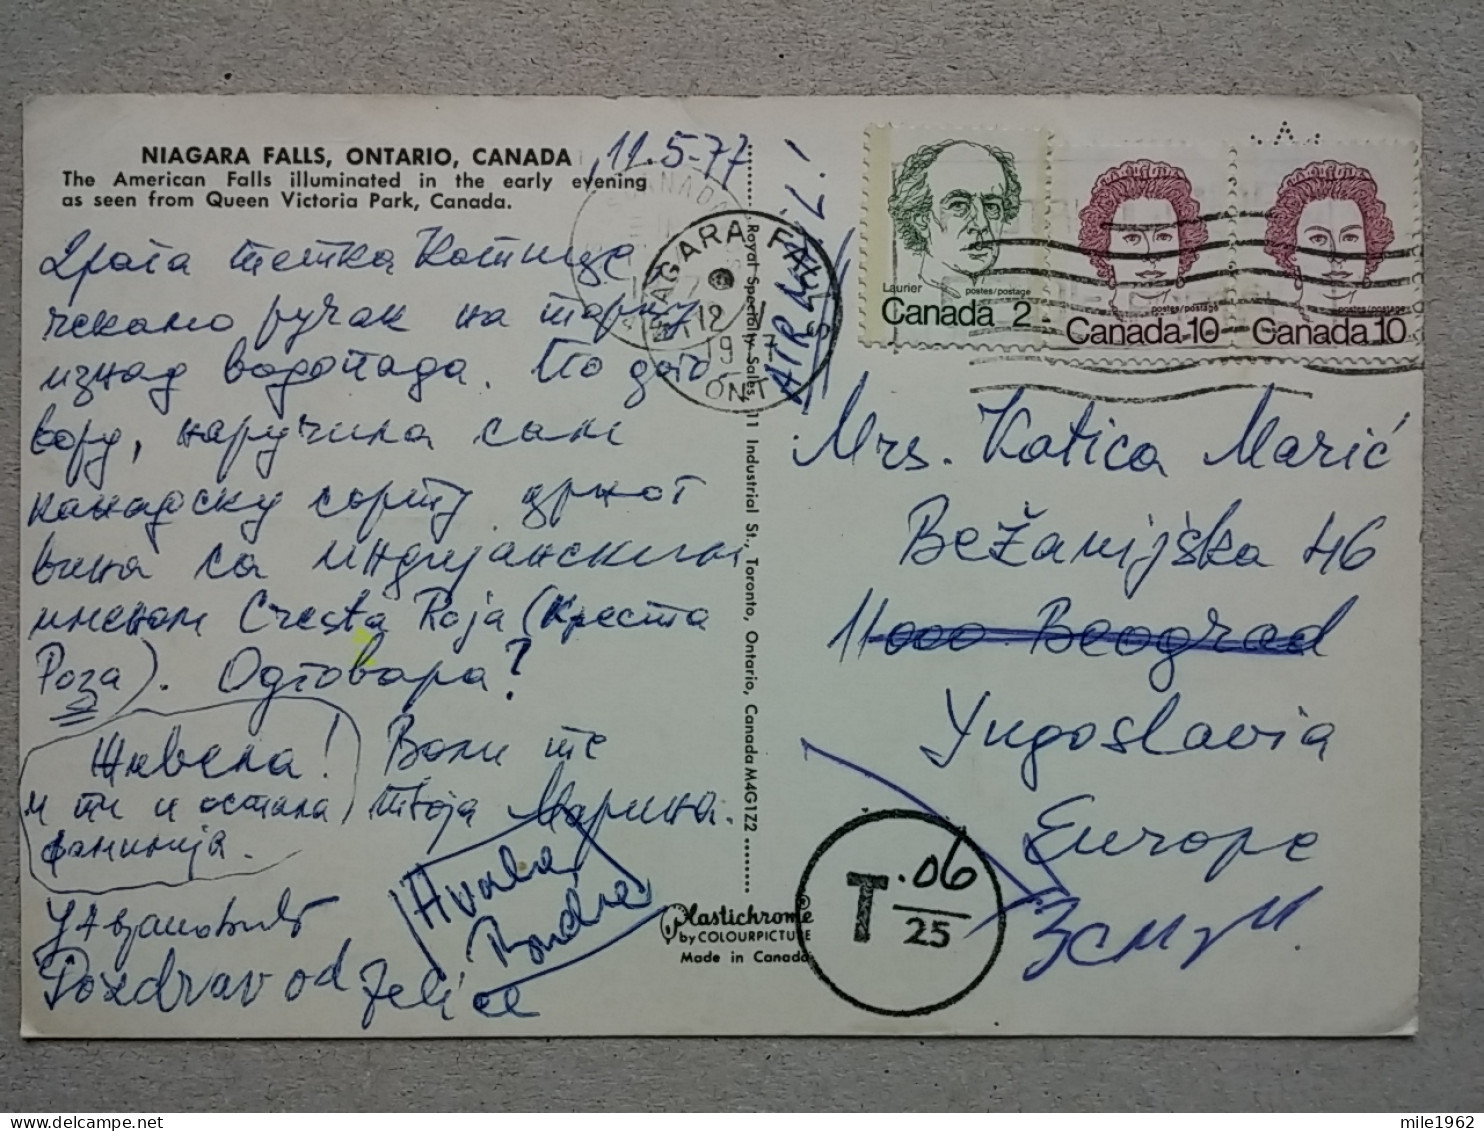 NIAGARA FALLS, ONTARIO, CANADA
The American Falls illuminated in the early evening
as seen from Queen Victoria Park, Canada.
11.5-77
Драга тетка Катице
чекамо ручак на торњу
изнад водопада. По дого
вору, наручила сам
канадску сорту црног
вина са индијанским
именом Cresta Roja (Креста
Роза). Одговара?
Живела!
и ти и остала
фамилија.
Воли те
твоја Марина.
Hvala
Pozdrav od Jelice
Royal Specialty Sales, 11 Industrial St., Toronto, Ontario, Canada M4G1Z2
Plastichrome®
by COLOURPICTURE
Made in Canada
NIAGARA FALLS
12 V
197
ONT
AIRMAIL!
Laurier
postes/postage
Canada 2
postes/postage
Canada 10
postes/postage
Canada 10
Mrs. Katica Marić
Bežanijska 46
11000 Beograd
Yugoslavia
Europe
Земун
T .06
25
mile1962